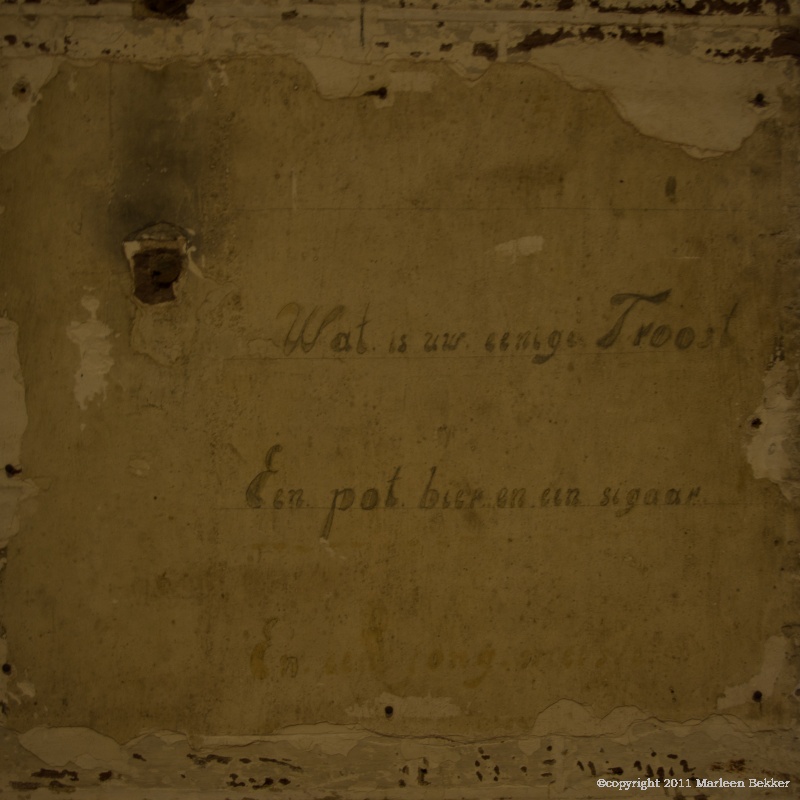 Wat is uw eenige Troost
Een pot bier en een sigaar.
En een jong
©copyright 2011 Marleen Bekker